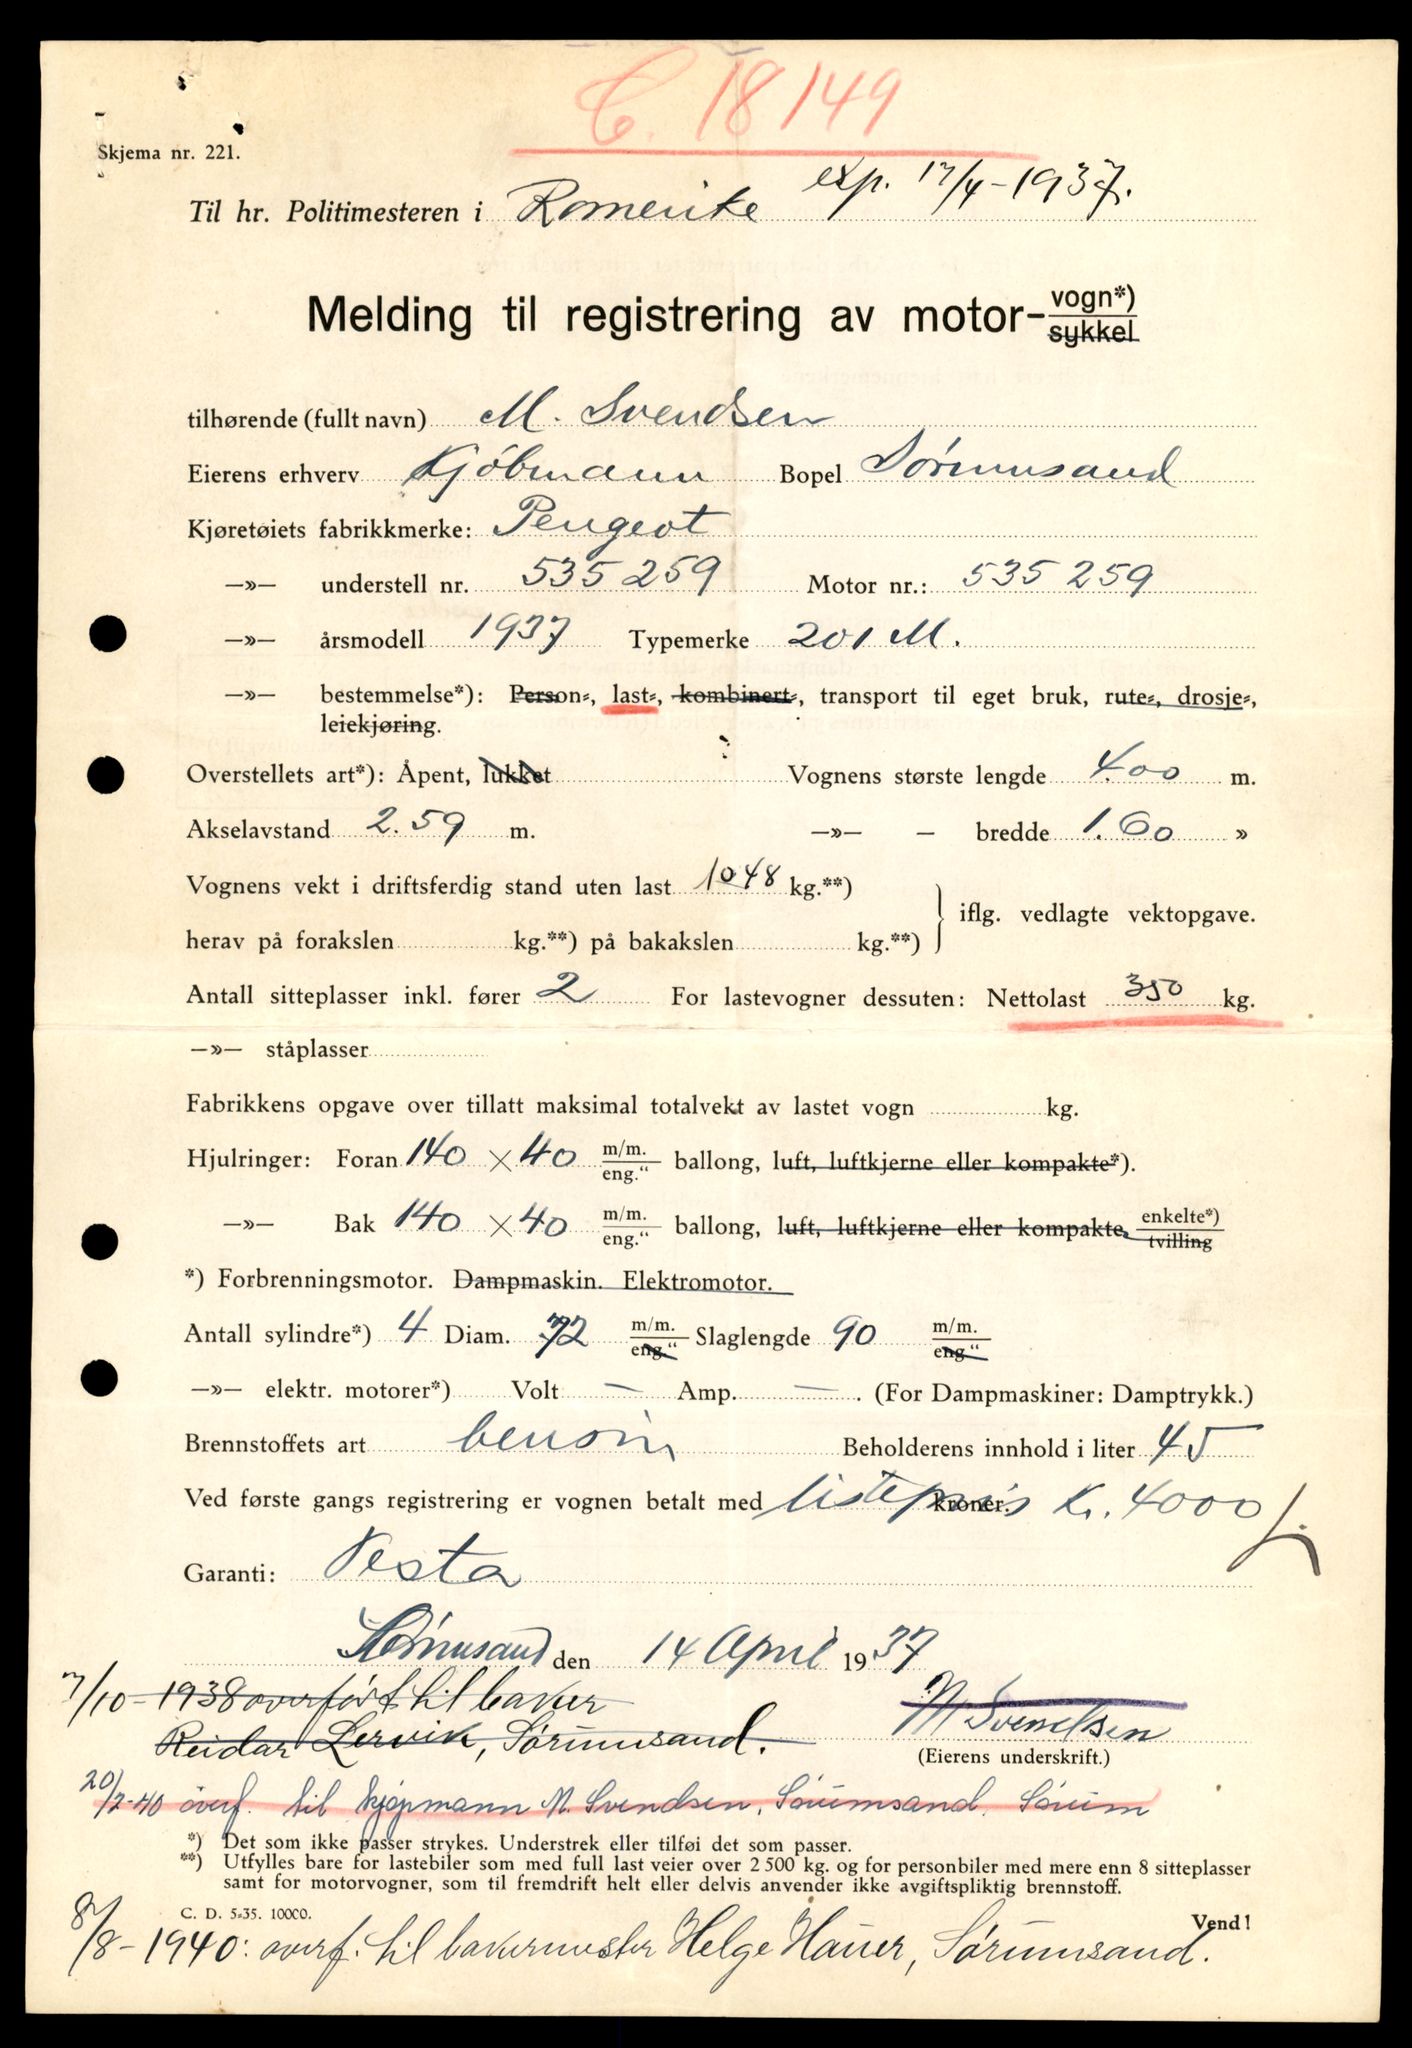 C. 18149
Skjema nr. 221.
exp. 17/4-1937.
Til hr. Politimesteren i Romerike
Melding til registrering av motor- vogn*) sykkel
tilhørende (fullt navn) M. Svendsen
Eierens erhverv Kjøbmann Bopel Sørumsand
Kjøretøiets fabrikkmerke: Peugeot
—»— understell nr. 535 259 Motor nr.: 535 259
—»— årsmodell 1937 Typemerke 201 M.
—»— bestemmelse*): Person-, last-, kombinert-, transport til eget bruk, rute-, drosje-,
leiekjøring.
Overstellets art*): Åpent, lukket Vognens største lengde 4.00 m.
Akselavstand 2.59 m. —»— - bredde 1.60 »
Vognens vekt i driftsferdig stand uten last 1048 kg.**)
iflg. vedlagte vektopgave.
herav på forakslen kg.**) på bakakslen kg.**)
Antall sitteplasser inkl. fører 2 For lastevogner dessuten: Nettolast 350 kg.
—»— ståplasser
Fabrikkens opgave over tillatt maksimal totalvekt av lastet vogn kg.
Hjulringer: Foran 140 × 40 m/m. eng.“ ballong, luft, luftkjerne eller kompakte*).
—»— Bak 140 × 40 m/m. eng.“ ballong, luft, luftkjerne eller kompakte, enkelte*) tvilling
*) Forbrenningsmotor. Dampmaskin. Elektromotor.
Antall sylindre*) 4 Diam. 72 m/m. eng.“ Slaglengde 90 m/m. eng.“
—»— elektr. motorer*) Volt — Amp. — . (For Dampmaskiner: Damptrykk.)
Brennstoffets art bensin Beholderens innhold i liter 45
Ved første gangs registrering er vognen betalt med listepris kroner. Kr. 4000
Garanti: Vesta
Sørumsand den 14 April 1937
7/10-1938 overført til baker
M Svendsen
Reidar Lervik, Sørumsand.
(Eierens underskrift.)
20/2-40 overf. til kjøpmann M. Svendsen, Sørumsand, Sørum
*) Det som ikke passer strykes. Understrek eller tilføi det som passer.
**) Utfylles bare for lastebiler som med full last veier over 2 500 kg. og for personbiler med mere enn 8 sitteplasser
samt for motorvogner, som til fremdrift helt eller delvis anvender ikke avgiftspliktig brennstoff.
C. D. 5-35. 10000.
Vend!
8/8-1940: overf. til bakermester Helge Hauer, Sørumsand.